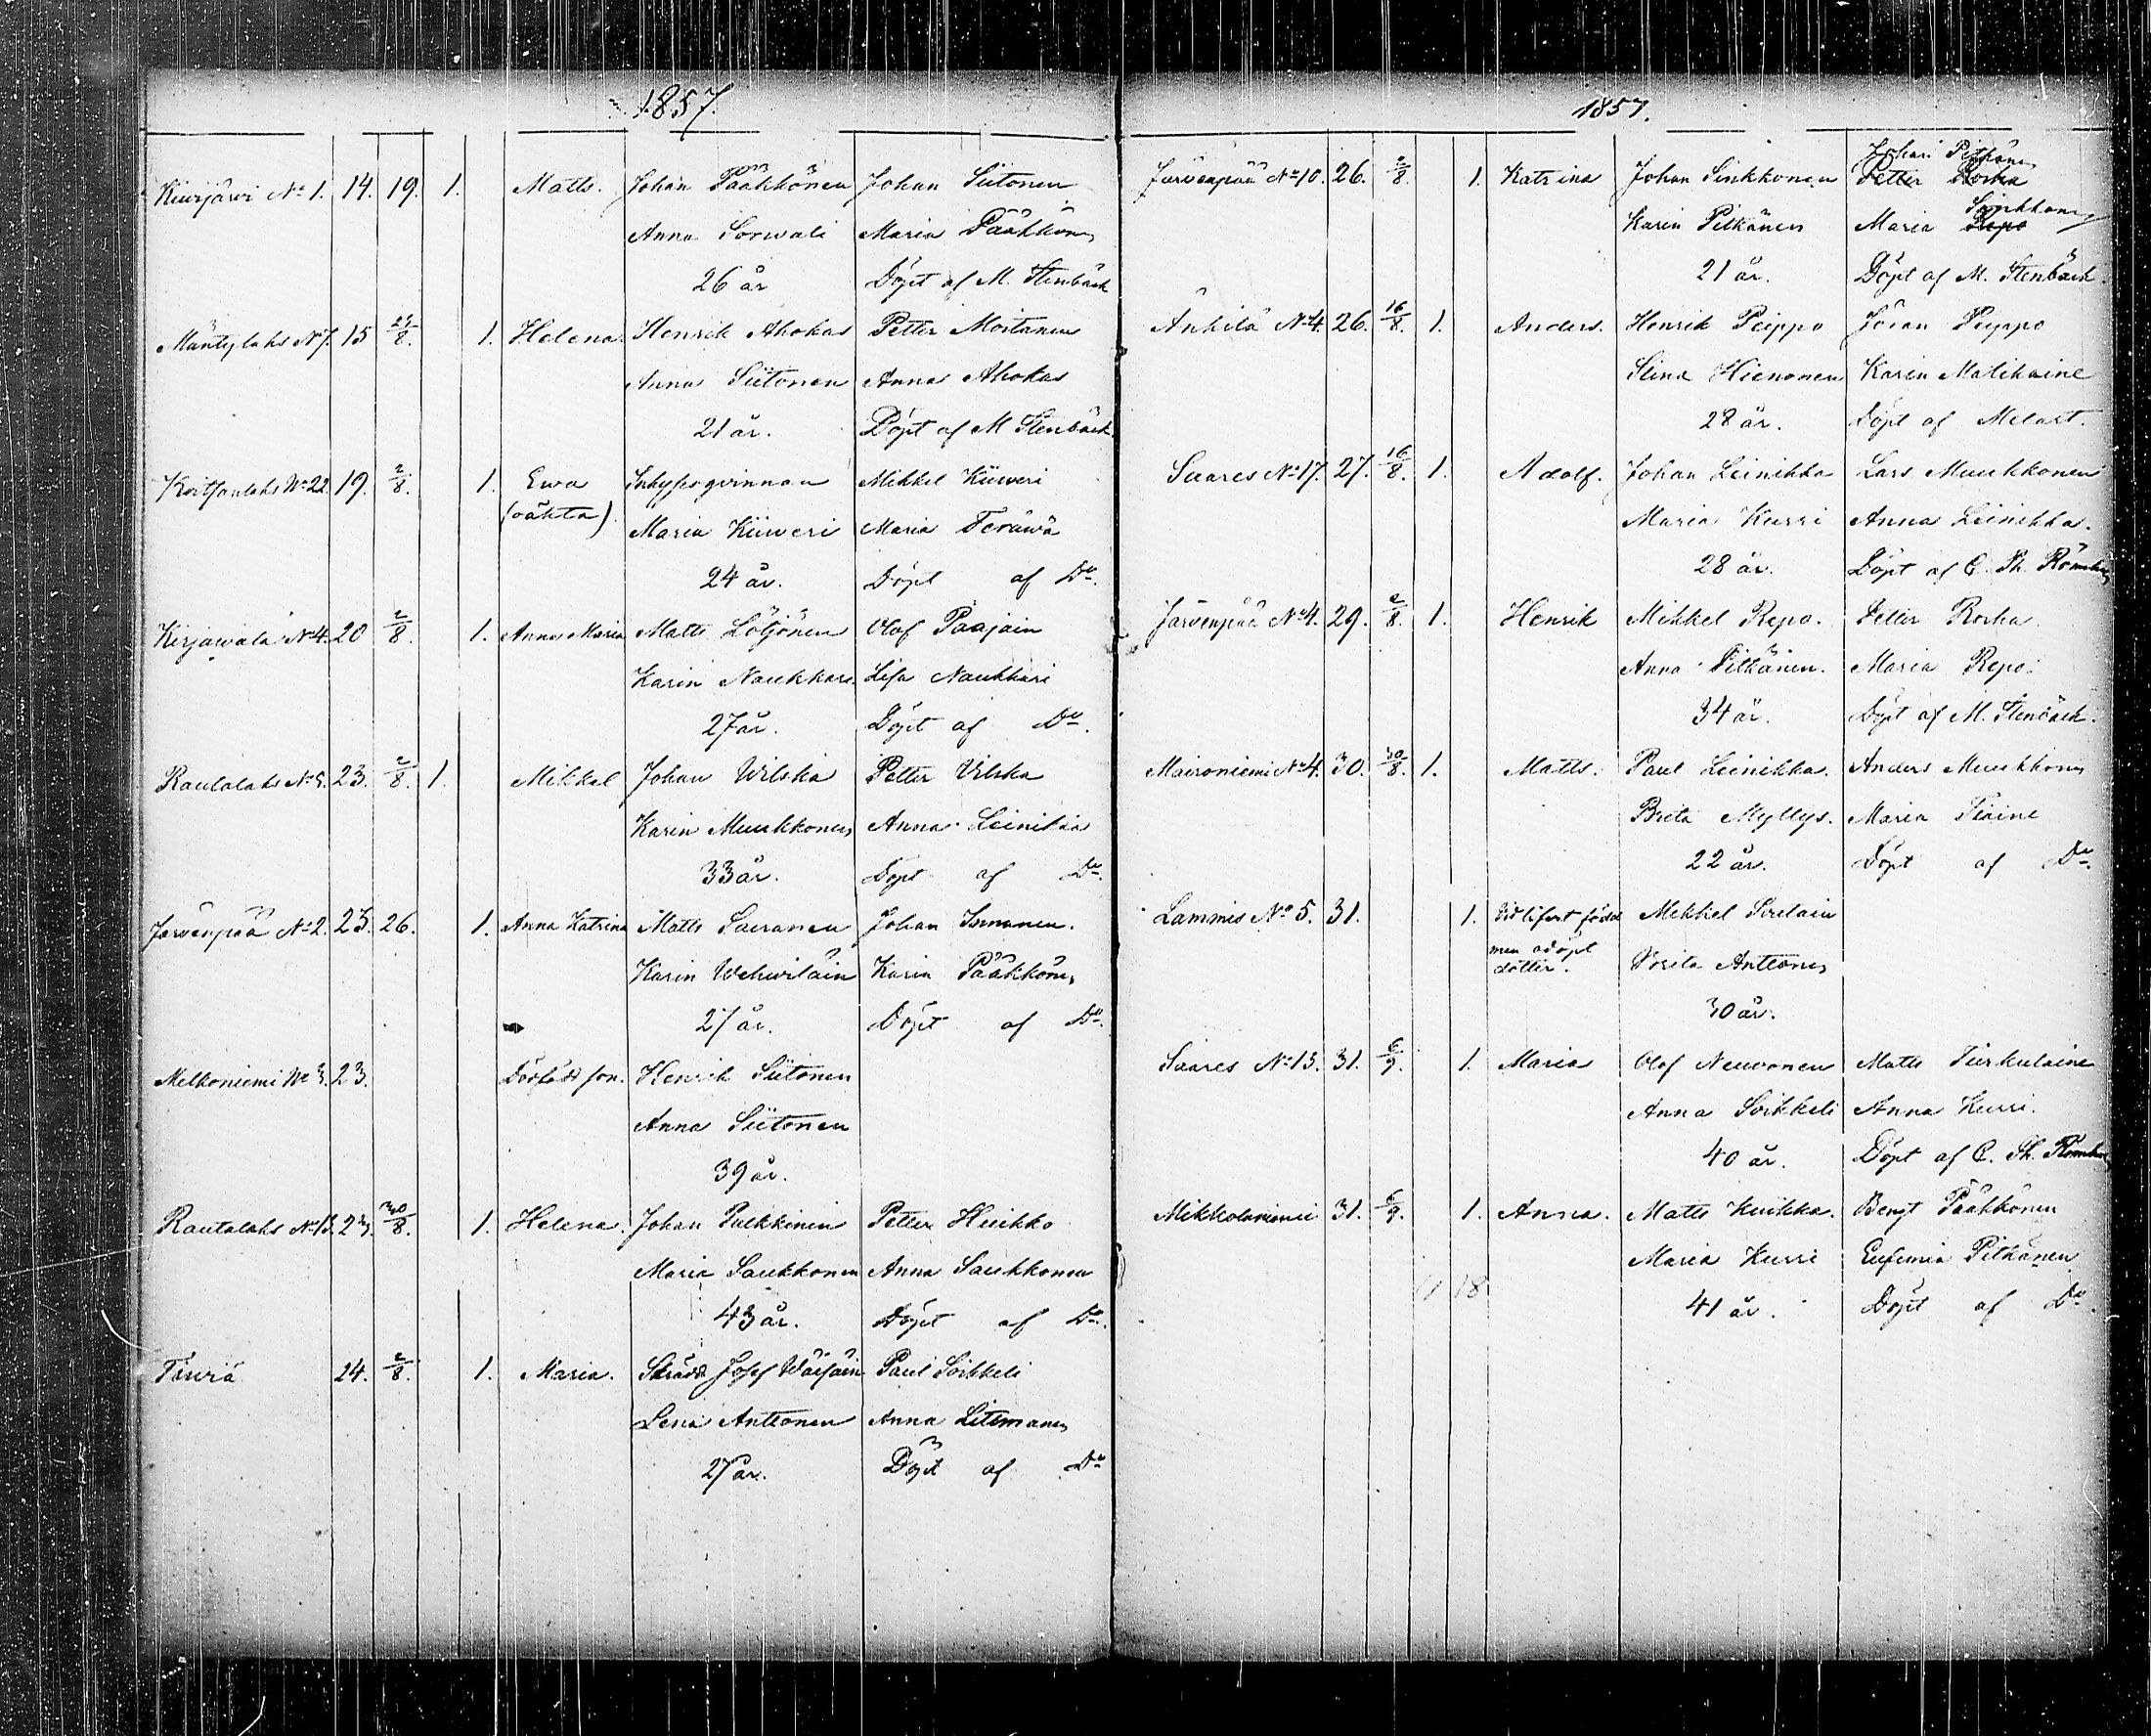 1857.
Kiurjärvi No 1. 14. 19. 1. Matts. Johan Pääkkönen Johan Siitonen
Anna Sorvali Maria Pääkkönen
26 år Döpt af M. Stenbäck
Mäntylaks No 7. 15 8. 1. Helena. Henrik Ahokas Petter Moilanen
Anna Siitonen Anna Ahokas
21 år. Döpt af M Stenbäck.
No 22. 19. 2/8. 1. Ewa Inhysesqvinnan Mikkel Kiiweri
(oäkta) Maria Kiiweri Maria Teräwä
24 år. Döpt af Do.
Kirjawala No 4. 20 2/8. 1. Anna Maria Matts Lötjönen Olof Paajain
Karin Naukkari. Lisa Naukkari
27 år. Döpt af Do.
Rautalaks No 9. 23. 2/8. 1. Mikkel Johan Wilska Petter Vilska
Karin Muukkonen Anna Leinikka
33 år. Döpt af Do.
Järvenpää No 2. 23. 26. 1. Anna Katrina Matts Sairanen Johan Immonen.
Karin Wehwiläin Karin Pääkkönen
27 år. Döpt af Do.
Melkoniemi No 3. 23. Dödfödd son. Henrik Siitonen
Anna Siitonen
39 år.
Rautalaks No 13. 23. 30/8. 1. Helena. Johan Pulkkinen Petter Huikko
Maria Saukkonen Anna Saukkonen
43 år. Döpt af Do.
Tiuria 24. 2/8. 1. Maria. Skrädd Josef Wäisäin Paul Soikkeli
Lena Anttonen Anna Litmanen
27 år. Döpt af Do
1857.
Johan Pitkänen
Järvenpää No 10. 26. 2/8. 1. Katrina Johan Sinkkonen Petter Roska
Sinkkonen
Karin Pitkänen Maria Repo
21 år. Döpt af M. Stenbäck.
Änkilä No 4. 26. 16/8. 1. Anders. Henrik Peippo Jöran Peippo
Stina Hienonen Karin Matikaine
28 år. Döpt af Melart.
Saares No 17. 27. 16/8. 1. Adolf. Johan Leinikka Lars Muukkonen
Maria Kurri Anna Leinikka.
28 år. Döpt af C. Th.
Järvenpää No 4. 29. 2/8. 1. Henrik Mikkel Repo. Petter Roska.
Anna Pitkänen. Maria Repo.
34 år. Döpt af M. Stenbäck.
Maironiemi No 4. 30. 30/8. 1. Matts. Paul Leinikka. Anders Muukkonen
Brita Myllys. Maria Tiaine
22 år. Döpt af Do.
Lammis No 5. 31. 1. Vid lifvet född Mikkel Siretäin
men odöpt
dotter. Brita Anttonen
30 år.
Saares No 13. 31. 6/9. 1. Maria Olof Neuvonen Matts Turkulaine
Anna Soikkeli Anna Kurri.
40 år. Döpt af C. Th.
Mikkolaniemi 31. 6/9. 1. Anna. Matts Kuikka. Bengt Pääkkönen
Maria Kurri Eufemia Pitkänen
11 18
41 år. Döpt af Do.